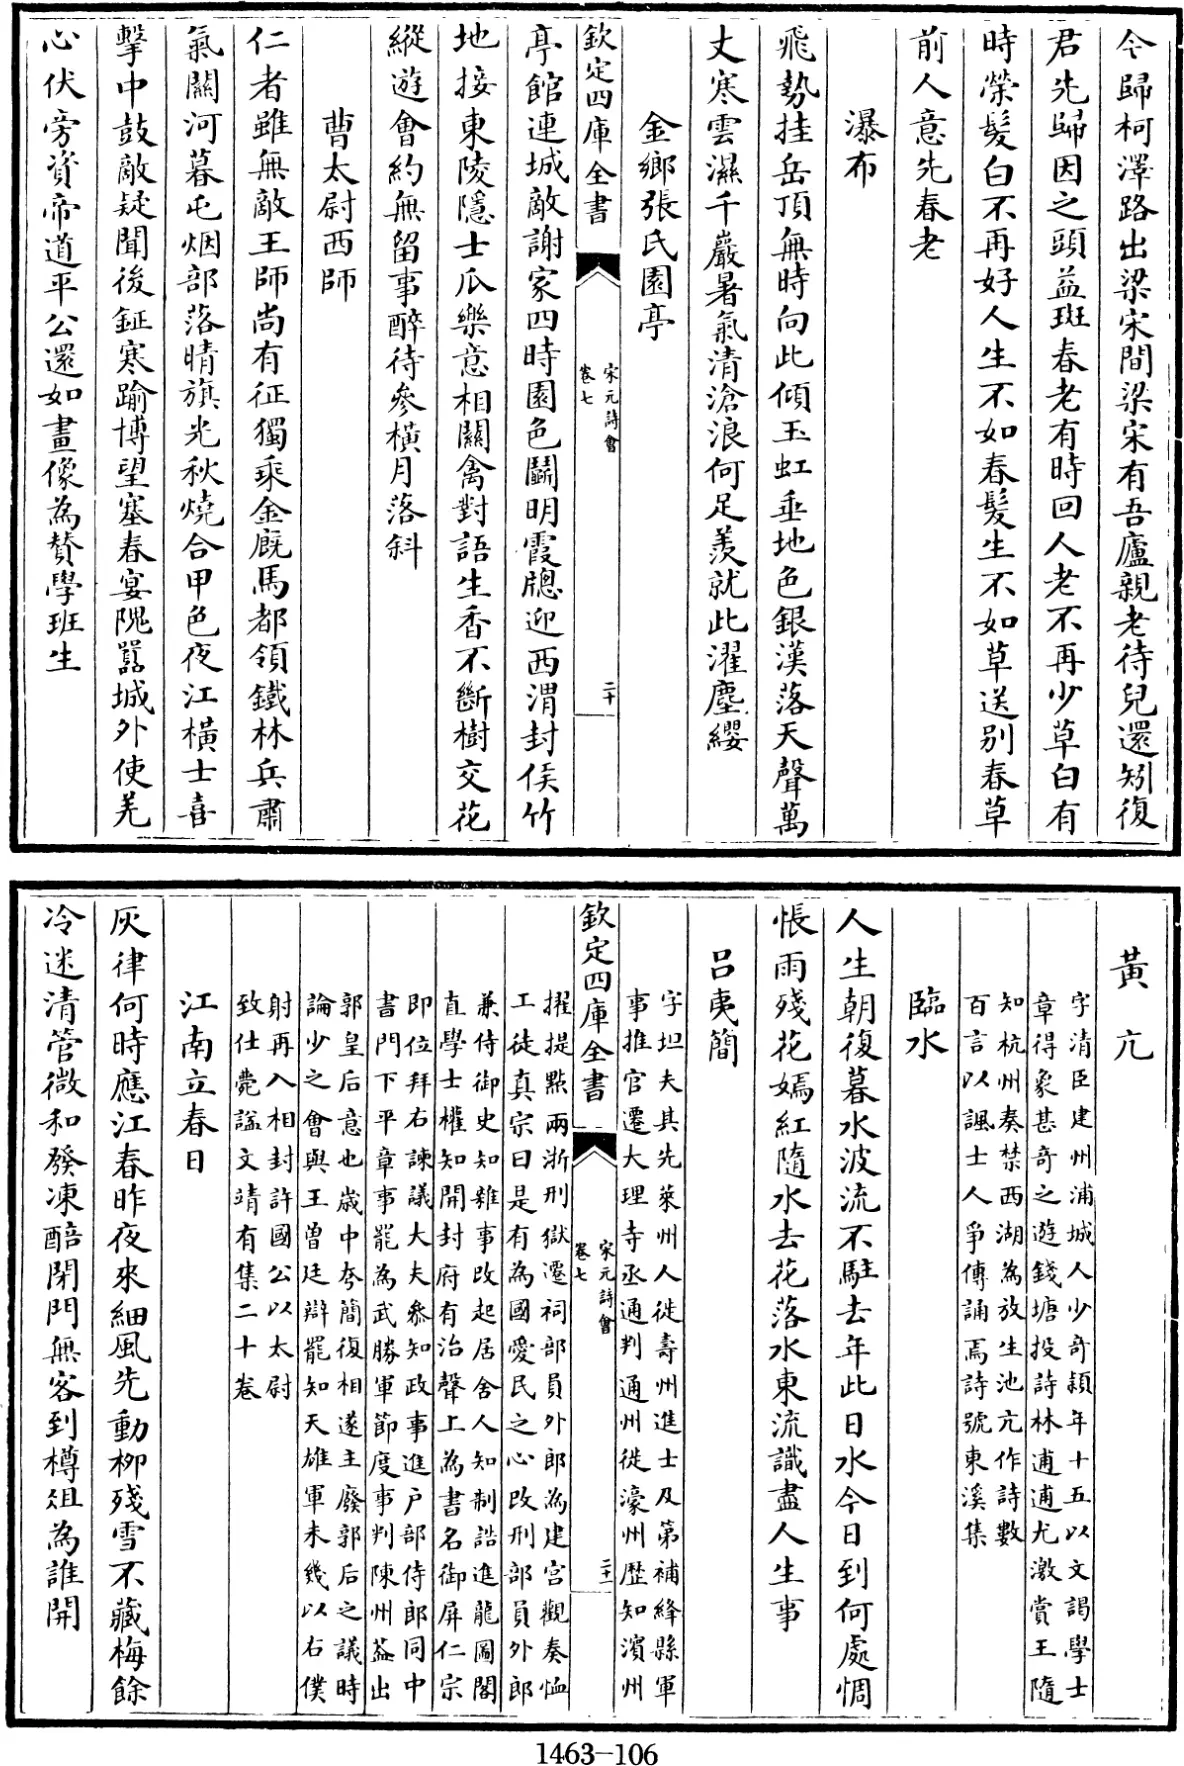 今歸柯澤路出梁宋間梁宋有吾廬親老待兒還矧復
君先歸因之頭益斑春老有時回人老不再少草白有
時榮髮白不再好人生不如春髮生不如草送別春草
前人意先春老
瀑布
飛勢挂岳頂無時向此傾玉虹垂地色銀漢落天聲萬
丈寒雲濕千巖暑氣清滄浪何足羨就此濯塵纓
金鄉張氏園亭
欽定四庫全書
宋元詩會
卷七
二十
亭館連城敵謝家四時園色鬭明霞牕迎西渭封侯竹
地接東陵隱士瓜樂意相關禽對語生香不斷樹交花
縱遊會約無留事醉待參橫月落斜
曹太尉西師
仁者雖無敵王師尚有征獨乘金廐馬都領鐵林兵肅
氣關河暮屯烟部落晴旗光秋燒合甲色夜江橫士喜
擊中鼓敵疑聞後鉦寒踰博望塞春宴隗囂城外使羌
心伏旁資帝道平公還如畫像為賛學班生
黃亢
字清臣建州浦城人少奇穎年十五以文謁學士
章得象甚奇之遊錢塘投詩林逋逋尤激賞王隨
知杭州奏禁西湖為放生池亢作詩數
百言以諷士人爭傳誦焉詩號東溪集
臨水
人生朝復暮水波流不駐去年此日水今日到何處惆
悵雨殘花嫣紅隨水去花落水東流識盡人生事
呂夷簡
字坦夫其先萊州人徙壽州進士及第補絳縣軍
事推官遷大理寺丞通判通州徙濠州歷知濱州
欽定四庫全書
宋元詩會
卷七
二十一
擢提點兩浙刑獄遷祠部員外郎為建宮觀奏恤
工徒真宗曰是有為國愛民之心改刑部員外郎
兼侍御史知雜事改起居舍人知制誥進龍圖閣
直學士權知開封府有治聲上為書名御屏仁宗
即位拜右諫議大夫參知政事進戶部侍郎同中
書門下平章事罷為武勝軍節度事判陳州葢出
郭皇后意也歲中夲簡復相遂主廢郭后之議時
論少之會與王曾廷辯罷知天雄軍未幾以右僕
射再入相封許國公以太尉
致仕薨諡文靖有集二十卷
江南立春日
灰律何時應江春昨夜來細風先動柳殘雪不藏梅餘
冷迷清管微和發凍醅閉門無客到樽俎為誰開
1463-106